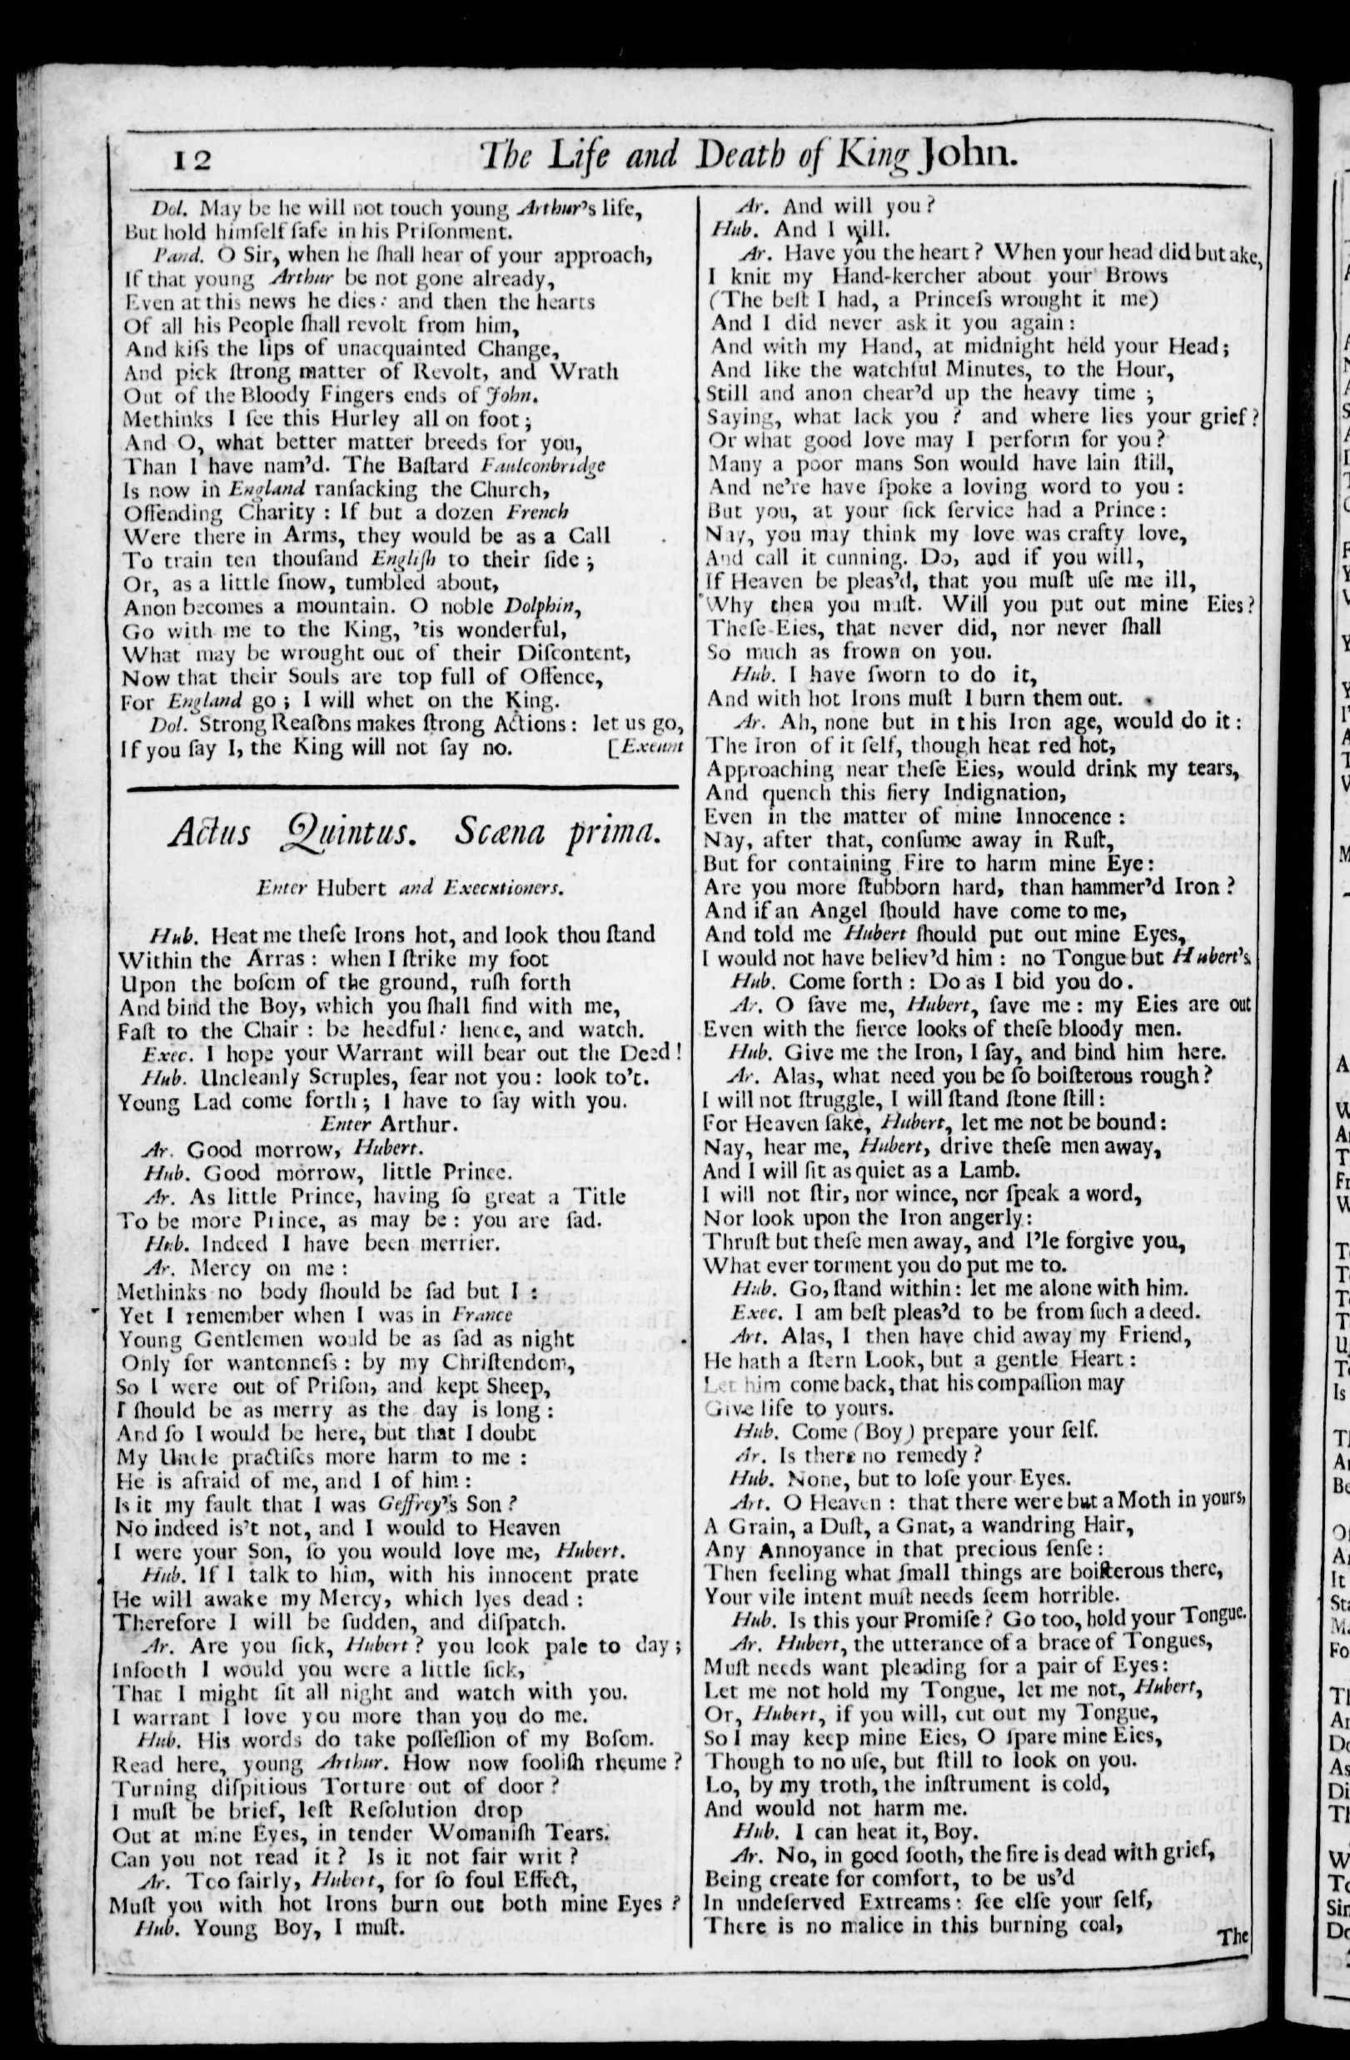 12
The Life and Death of King John.
Dol. May be he will not touch young Arthur's life,
But hold himſelf ſafe in his Priſonment.
Pand. O Sir, when he ſhall hear of your approach,
If that young Arthur be not gone already,
Even at this news he dies: and then the hearts
Of all his People ſhall revolt from him,
And kiſs the lips of unacquainted Change,
And pick ſtrong matter of Revolt, and Wrath
Out of the Bloody Fingers ends of John.
Methinks I ſee this Hurley all on foot;
And O, what better matter breeds for you,
Than I have nam'd. The Baſtard Faulconbridge
Is now in England ranſacking the Church,
Offending Charity: If but a dozen French
Were there in Arms, they would be as a Call
To train ten thouſand Engliſh to their ſide;
Or, as a little ſnow, tumbled about,
Anon becomes a mountain. O noble Dolphin,
Go with me to the King, 'tis wonderful,
What may be wrought out of their Diſcontent,
Now that their Souls are top full of Offence,
For England go; I will whet on the King.
Dol. Strong Reaſons makes ſtrong Actions: let us go,
If you ſay I, the King will not ſay no. [Exeunt
Actus Quintus. Scæna prima.
Enter Hubert and Executioners.
Hub. Heat me theſe Irons hot, and look thou ſtand
Within the Arras: when I ſtrike my foot
Upon the boſom of the ground, ruſh forth
And bind the Boy, which you ſhall find with me,
Faſt to the Chair: be heedful: hence, and watch.
Exec. I hope your Warrant will bear out the Deed!
Hub. Uncleanly Scruples, fear not you: look to't.
Young Lad come forth; I have to ſay with you.
Enter Arthur.
Ar. Good morrow, Hubert.
Hub. Good morrow, little Prince.
Ar. As little Prince, having ſo great a Title
To be more Prince, as may be: you are ſad.
Hub. Indeed I have been merrier.
Ar. Mercy on me:
Methinks no body ſhould be ſad but I:
Yet I remember when I was in France
Young Gentlemen would be as ſad as night
Only for wantonneſs: by my Chriſtendom,
So I were out of Priſon, and kept Sheep,
I ſhould be as merry as the day is long:
And ſo I would be here, but that I doubt
My Uncle practiſes more harm to me:
He is afraid of me, and I of him:
Is it my fault that I was Geffrey's Son?
No indeed is't not, and I would to Heaven
I were your Son, ſo you would love me, Hubert.
Hub. If I talk to him, with his innocent prate
He will awake my Mercy, which lyes dead:
Therefore I will be ſudden, and diſpatch.
Ar. Are you ſick, Hubert? you look pale to day;
Inſooth I would you were a little ſick,
That I might ſit all night and watch with you.
I warrant I love you more than you do me.
Hub. His words do take poſſeſſion of my Boſom.
Read here, young Arthur. How now fooliſh rheume?
Turning diſpitious Torture out of door?
I muſt be brief, leſt Reſolution drop
Out at mine Eyes, in tender Womaniſh Tears.
Can you not read it? Is it not fair writ?
Ar. Too fairly, Hubert, for ſo foul Effect,
Muſt you with hot Irons burn out both mine Eyes?
Hub. Young Boy, I muſt.
Ar. And will you?
Hub. And I will.
Ar. Have you the heart? When your head did but ake,
I knit my Hand-kercher about your Brows
(The beſt I had, a Princeſs wrought it me)
And I did never ask it you again:
And with my Hand, at midnight held your Head;
And like the watchful Minutes, to the Hour,
Still and anon chear'd up the heavy time;
Saying, what lack you? and where lies your grief?
Or what good love may I perform for you?
Many a poor mans Son would have lain ſtill,
And ne're have ſpoke a loving word to you:
But you, at your ſick ſervice had a Prince:
Nay, you may think my love was crafty love,
And call it cunning. Do, and if you will,
If Heaven be pleas'd, that you muſt uſe me ill,
Why then you muſt. Will you put out mine Eies?
Theſe Eies, that never did, nor never ſhall
So much as frown on you.
Hub. I have ſworn to do it,
And with hot Irons muſt I burn them out.
Ar. Ah, none but in this Iron age, would do it:
The Iron of it ſelf, though heat red hot,
Approaching near theſe Eies, would drink my tears,
And quench this fiery Indignation,
Even in the matter of mine Innocence:
Nay, after that, conſume away in Ruſt,
But for containing Fire to harm mine Eye:
Are you more ſtubborn hard, than hammer'd Iron?
And if an Angel ſhould have come to me,
And told me Hubert ſhould put out mine Eyes,
I would not have believ'd him: no Tongue but Hubert's.
Hub. Come forth: Do as I bid you do.
Ar. O ſave me, Hubert, ſave me: my Eies are out
Even with the fierce looks of theſe bloody men.
Hub. Give me the Iron, I ſay, and bind him here.
Ar. Alas, what need you be ſo boiſterous rough?
I will not ſtruggle, I will ſtand ſtone ſtill:
For Heaven ſake, Hubert, let me not be bound:
Nay, hear me, Hubert, drive theſe men away,
And I will ſit as quiet as a Lamb.
I will not ſtir, nor wince, nor ſpeak a word,
Nor look upon the Iron angerly:
Thruſt but theſe men away, and I'le forgive you,
What ever torment you do put me to.
Hub. Go, ſtand within: let me alone with him.
Exec. I am beſt pleas'd to be from ſuch a deed.
Art. Alas, I then have chid away my Friend,
He hath a ſtern Look, but a gentle Heart:
Let him come back, that his compaſſion may
Give life to yours.
Hub. Come (Boy) prepare your ſelf.
Ar. Is there no remedy?
Hub. None, but to loſe your Eyes.
Art. O Heaven: that there were but a Moth in yours,
A Grain, a Duſt, a Gnat, a wandring Hair,
Any Annoyance in that precious ſenſe:
Then feeling what ſmall things are boiſterous there,
Your vile intent muſt needs ſeem horrible.
Hub. Is this your Promiſe? Go too, hold your Tongue.
Ar. Hubert, the utterance of a brace of Tongues,
Muſt needs want pleading for a pair of Eyes:
Let me not hold my Tongue, let me not, Hubert,
Or, Hubert, if you will, cut out my Tongue,
So I may keep mine Eies, O ſpare mine Eies,
Though to no uſe, but ſtill to look on you.
Lo, by my troth, the inſtrument is cold,
And would not harm me.
Hub. I can heat it, Boy.
Ar. No, in good ſooth, the fire is dead with grief,
Being create for comfort, to be us'd
In undeſerved Extreams: ſee elſe your ſelf,
There is no malice in this burning coal,
The